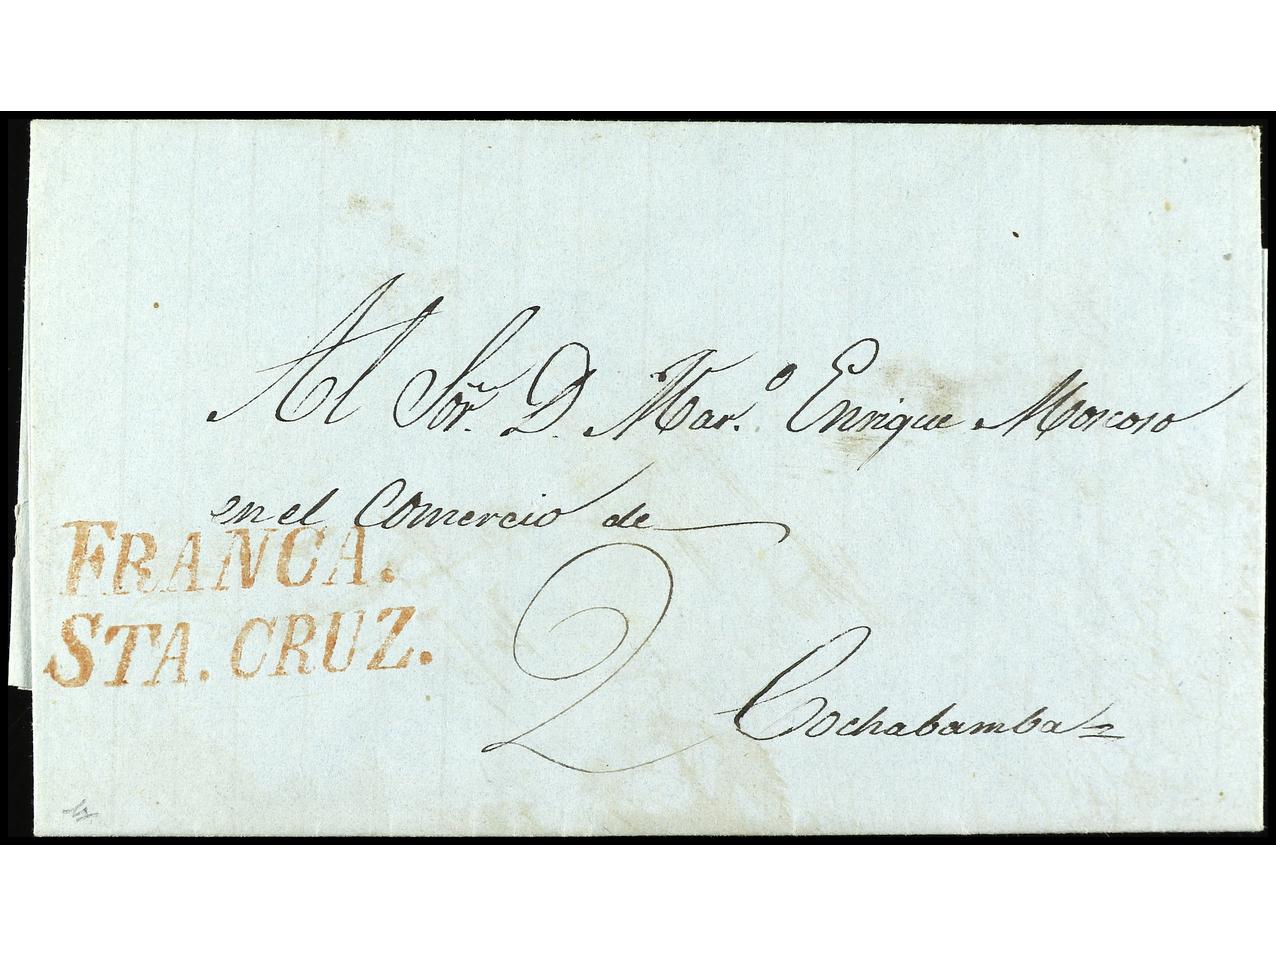 Al Sor. D. Mar.º Enrique Moscoso
en el Comercio de
FRANCA.
STA. CRUZ.
2
Cochabamba